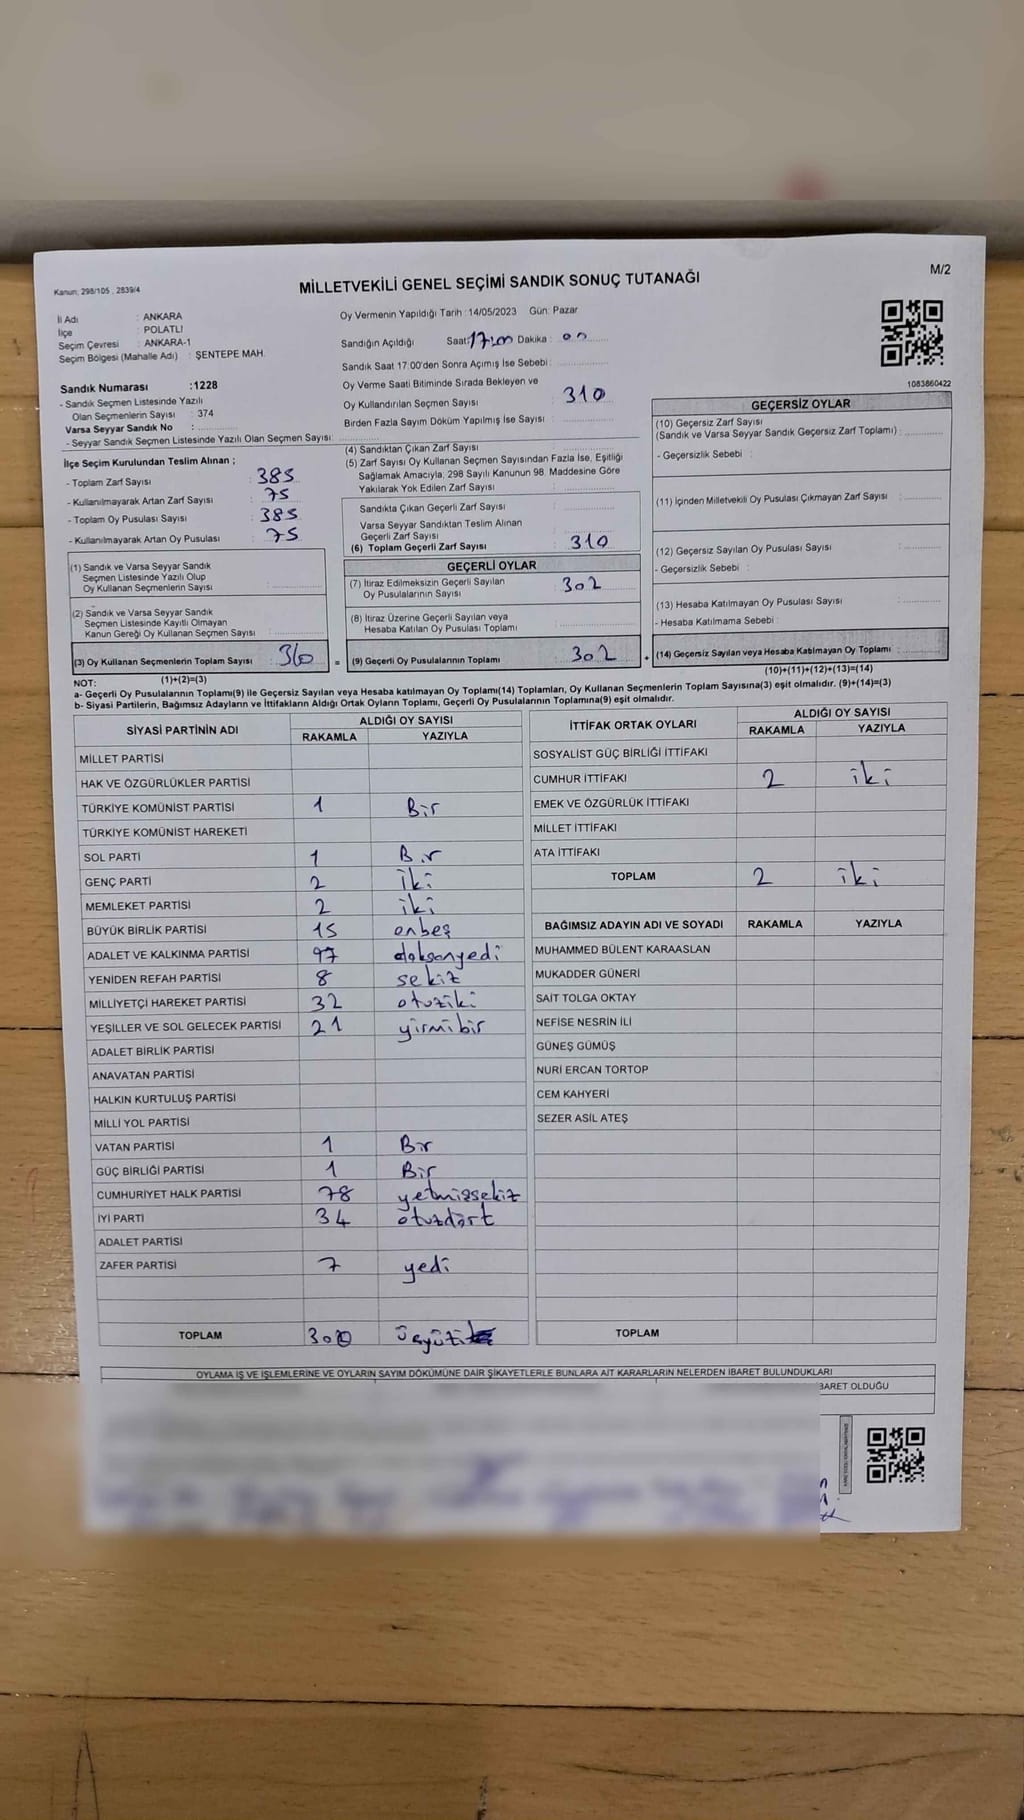 M/2
Kanun; 298/105 , 2839/4
MİLLETVEKİLİ GENEL SEÇİMİ SANDIK SONUÇ TUTANAĞI
İl Adı : ANKARA
İlçe : POLATLI
Seçim Çevresi : ANKARA-1
Seçim Bölgesi (Mahalle Adı) : ŞENTEPE MAH.
Sandık Numarası :1228
- Sandık Seçmen Listesinde Yazılı
Olan Seçmenlerin Sayısı : 374
Varsa Seyyar Sandık No :
- Seyyar Sandık Seçmen Listesinde Yazılı Olan Seçmen Sayısı:
İlçe Seçim Kurulundan Teslim Alınan ;
- Toplam Zarf Sayısı : 385
- Kullanılmayarak Artan Zarf Sayısı : 75
- Toplam Oy Pusulası Sayısı : 385
- Kullanılmayarak Artan Oy Pusulası : 75
(1) Sandık ve Varsa Seyyar Sandık
Seçmen Listesinde Yazılı Olup
Oy Kullanan Seçmenlerin Sayısı :
(2) Sandık ve Varsa Seyyar Sandık
Seçmen Listesinde Kayıtlı Olmayan
Kanun Gereği Oy Kullanan Seçmen Sayısı :
(3) Oy Kullanan Seçmenlerin Toplam Sayısı :
(1)+(2)=(3)
Oy Vermenin Yapıldığı Tarih : 14/05/2023 Gün: Pazar
Sandığın Açıldığı Saat: Dakika : 00
Sandık Saat 17:00'den Sonra Açımış İse Sebebi :
Oy Verme Saati Bitiminde Sırada Bekleyen ve
Oy Kullandırılan Seçmen Sayısı : 310
Birden Fazla Sayım Döküm Yapılmış İse Sayısı :
(4) Sandıktan Çıkan Zarf Sayısı :
(5) Zarf Sayısı Oy Kullanan Seçmen Sayısından Fazla İse, Eşitliği
Sağlamak Amacıyla, 298 Sayılı Kanunun 98. Maddesine Göre
Yakılarak Yok Edilen Zarf Sayısı :
Sandıkta Çıkan Geçerli Zarf Sayısı :
Varsa Seyyar Sandıktan Teslim Alınan
Geçerli Zarf Sayısı :
(6) Toplam Geçerli Zarf Sayısı : 310
GEÇERLİ OYLAR
(7) İtiraz Edilmeksizin Geçerli Sayılan
Oy Pusulalarının Sayısı : 302
(8) İtiraz Üzerine Geçerli Sayılan veya
Hesaba Katılan Oy Pusulası Toplamı :
= (9) Geçerli Oy Pusulalarının Toplamı : 302 +
1083860422
GEÇERSİZ OYLAR
(10) Geçersiz Zarf Sayısı
(Sandık ve Varsa Seyyar Sandık Geçersiz Zarf Toplamı) :
- Geçersizlik Sebebi :
(11) İçinden Milletvekili Oy Pusulası Çıkmayan Zarf Sayısı :
(12) Geçersiz Sayılan Oy Pusulası Sayısı :
- Geçersizlik Sebebi :
(13) Hesaba Katılmayan Oy Pusulası Sayısı :
- Hesaba Katılmama Sebebi :
(14) Geçersiz Sayılan veya Hesaba Katılmayan Oy Toplamı :
(10)+(11)+(12)+(13)=(14)
NOT:
a- Geçerli Oy Pusulalarının Toplamı(9) ile Geçersiz Sayılan veya Hesaba katılmayan Oy Toplamı(14) Toplamları, Oy Kullanan Seçmenlerin Toplam Sayısına(3) eşit olmalıdır. (9)+(14)=(3)
b- Siyasi Partilerin, Bağımsız Adayların ve İttifakların Aldığı Ortak Oyların Toplamı, Geçerli Oy Pusulalarının Toplamına(9) eşit olmalıdır.
SİYASİ PARTİNİN ADI ALDIĞI OY SAYISI
RAKAMLA YAZIYLA
MİLLET PARTİSİ
HAK VE ÖZGÜRLÜKLER PARTİSİ
TÜRKİYE KOMÜNİST PARTİSİ 1 Bir
TÜRKİYE KOMÜNİST HAREKETİ
SOL PARTİ 1 Bir
GENÇ PARTİ 2 iki
MEMLEKET PARTİSİ 2 iki
BÜYÜK BİRLİK PARTİSİ 15 onbeş
ADALET VE KALKINMA PARTİSİ 97 doksanyedi
YENİDEN REFAH PARTİSİ 8 sekiz
MİLLİYETÇİ HAREKET PARTİSİ 32 otuziki
YEŞİLLER VE SOL GELECEK PARTİSİ 21 yirmibir
ADALET BİRLİK PARTİSİ
ANAVATAN PARTİSİ
HALKIN KURTULUŞ PARTİSİ
MİLLİ YOL PARTİSİ
VATAN PARTİSİ 1 Bir
GÜÇ BİRLİĞİ PARTİSİ 1 Bir
CUMHURİYET HALK PARTİSİ 78 yetmişsekiz
İYİ PARTİ 34 otuzdört
ADALET PARTİSİ
ZAFER PARTİSİ 7 yedi
TOPLAM
İTTİFAK ORTAK OYLARI ALDIĞI OY SAYISI
RAKAMLA YAZIYLA
SOSYALİST GÜÇ BİRLİĞİ İTTİFAKI
CUMHUR İTTİFAKI 2 iki
EMEK VE ÖZGÜRLÜK İTTİFAKI
MİLLET İTTİFAKI
ATA İTTİFAKI
TOPLAM 2 iki
BAĞIMSIZ ADAYIN ADI VE SOYADI RAKAMLA YAZIYLA
MUHAMMED BÜLENT KARAASLAN
MUKADDER GÜNERİ
SAİT TOLGA OKTAY
NEFİSE NESRİN İLİ
GÜNEŞ GÜMÜŞ
NURİ ERCAN TORTOP
CEM KAHYERİ
SEZER ASİL ATEŞ
TOPLAM
OYLAMA İŞ VE İŞLEMLERİNE VE OYLARIN SAYIM DÖKÜMÜNE DAİR ŞİKAYETLERLE BUNLARA AİT KARARLARIN NELERDEN İBARET BULUNDUKLARI
BARET OLDUĞU